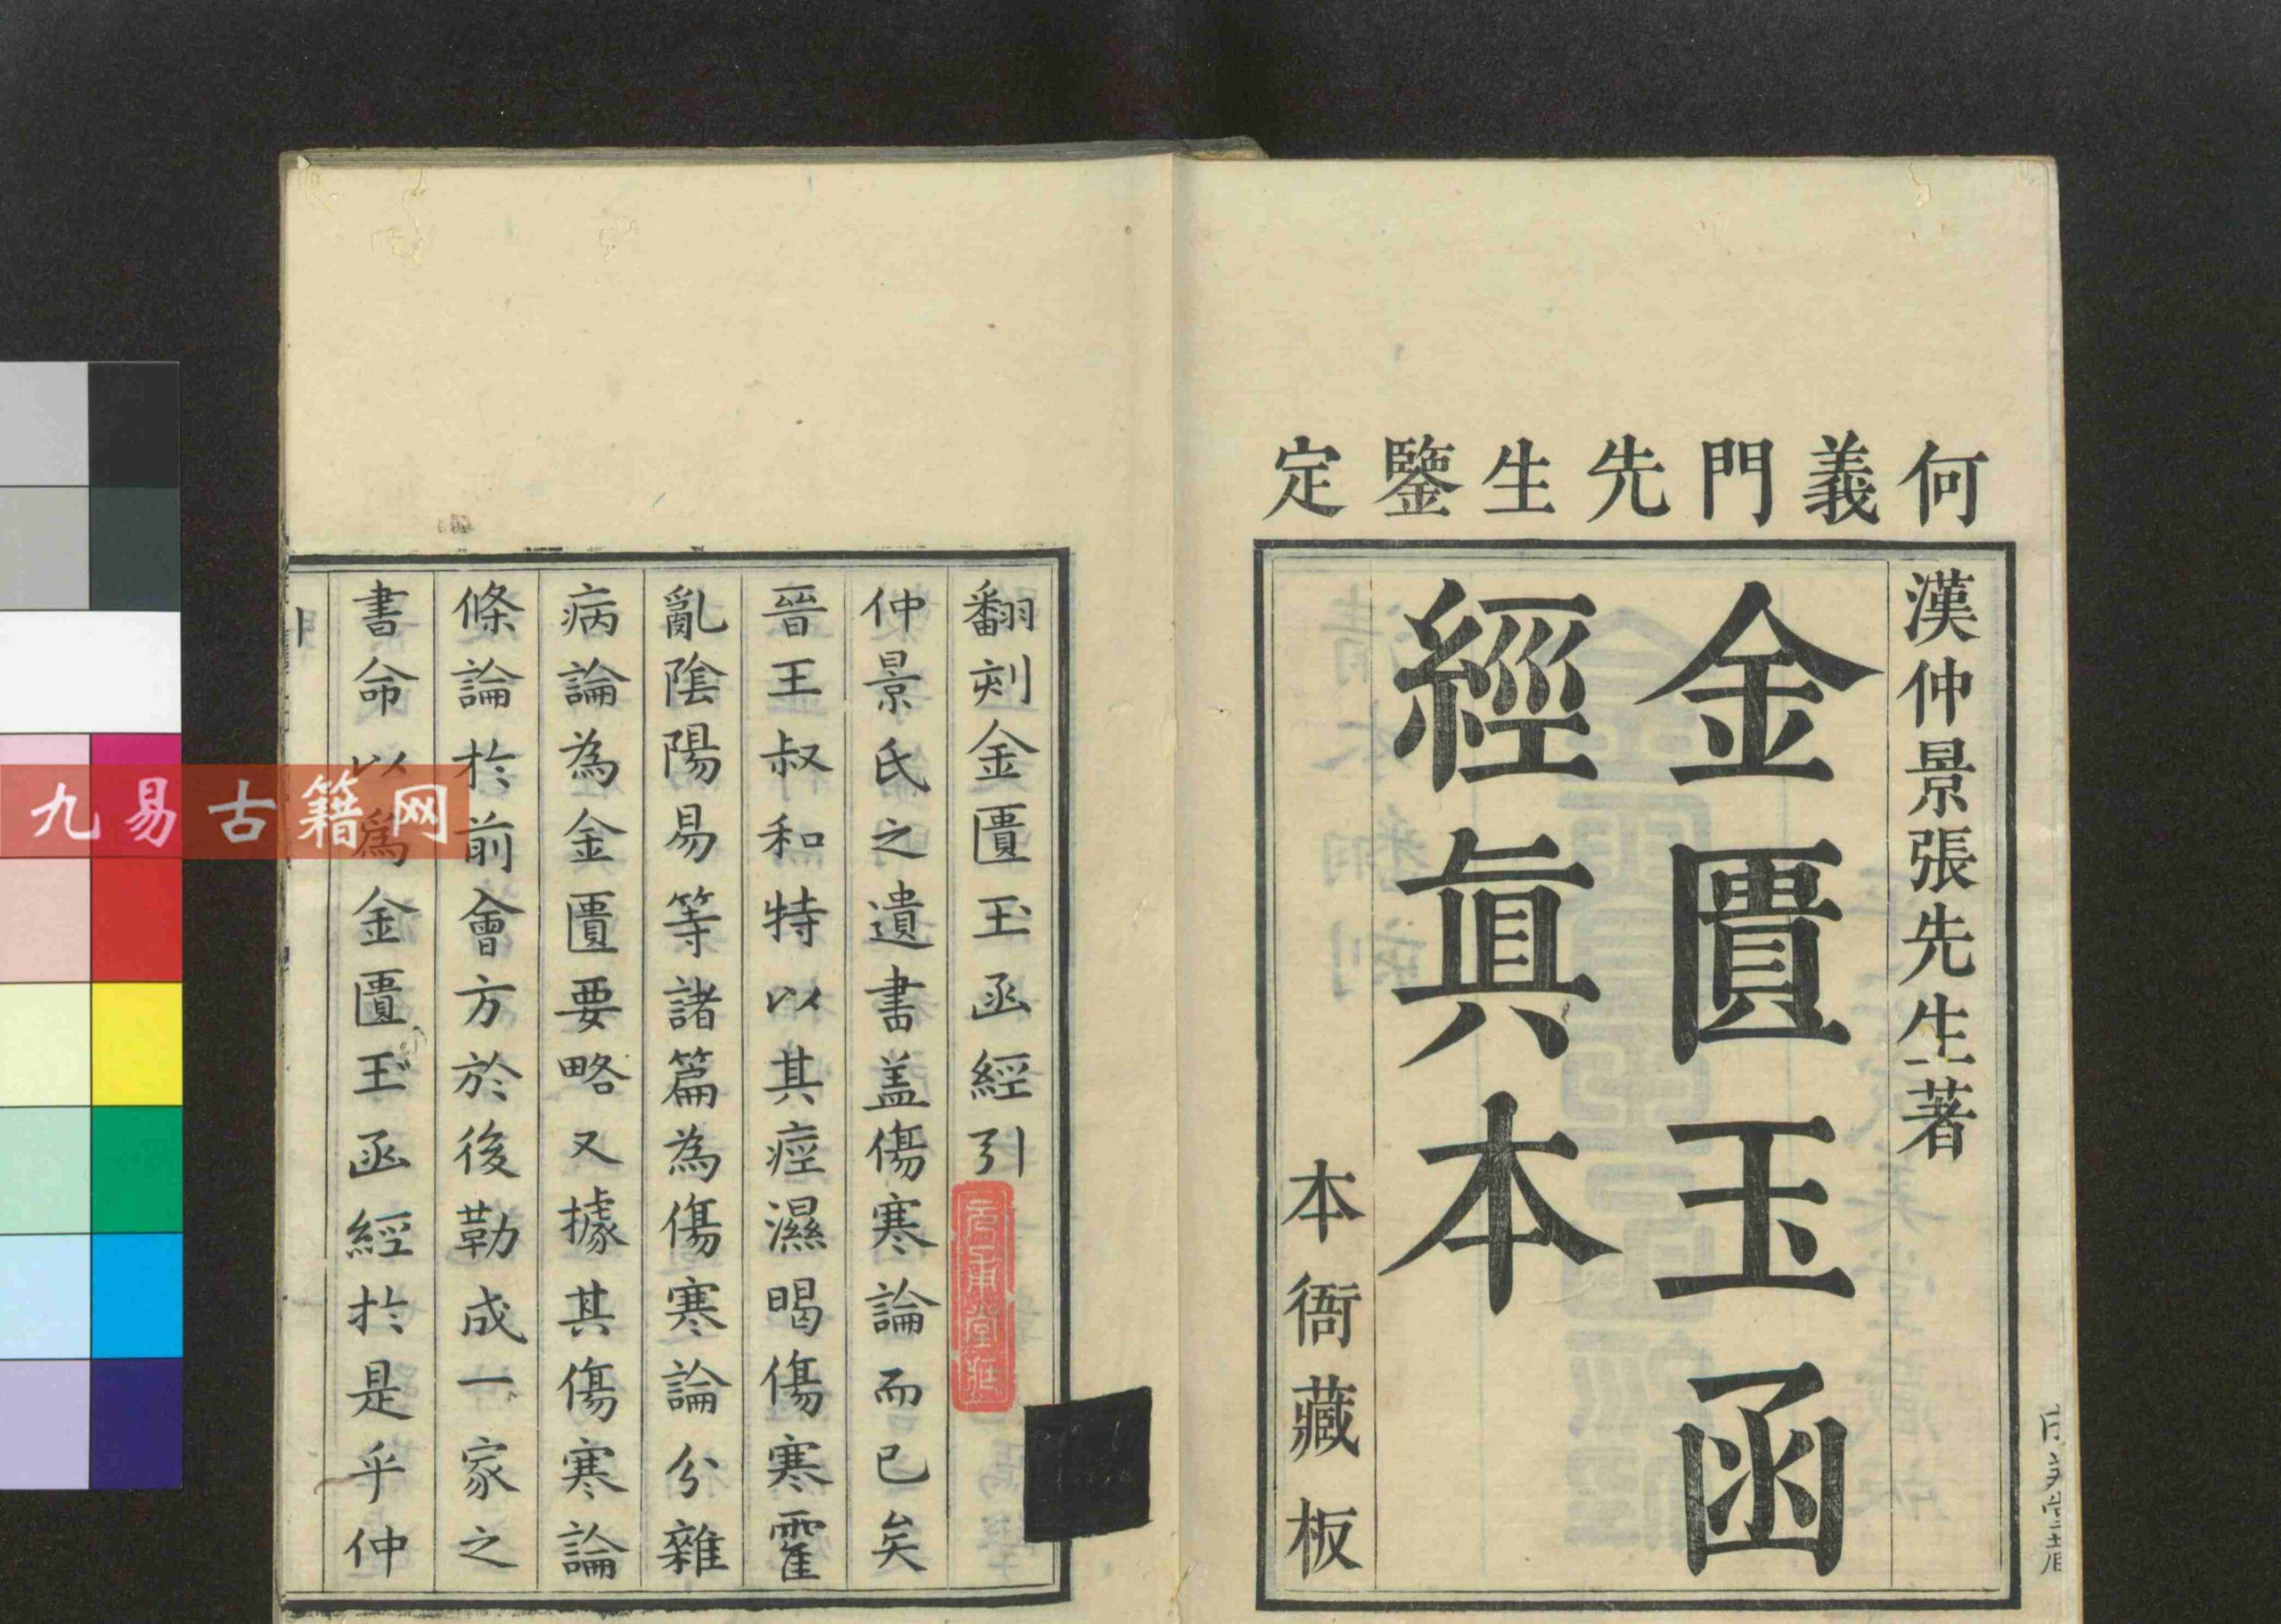 何義門先生鑒定
漢仲景張先生著
金匱玉函
經眞本
本衙藏板
翻刻金匱玉函經引
仲景氏之遺書盖傷寒論而已矣
晉王叔和特以其痙濕暍傷寒霍
亂陰陽易等諸篇為傷寒論分雜
病論為金匱要略又據其傷寒論
條論於前會方於後勒成一家之
書命以爲金匱玉函經於是乎仲
九易古籍网